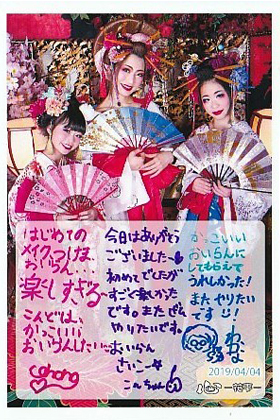 はじめての
メイク、つけま、
おいらん…
楽しすぎる〜
こんどは、
かっこいい
おいらんしたい〜
今日はありがとう
ございました
初めてでしたが
すごく楽しかった
です。またぜひ
やりたいです。
おいらん
さいこー
こんちゃん
かっこいい
おいらんに
してもらえて
うれしかった!
またやりたい
です!!
わかな
2019/04/04
一花亭一